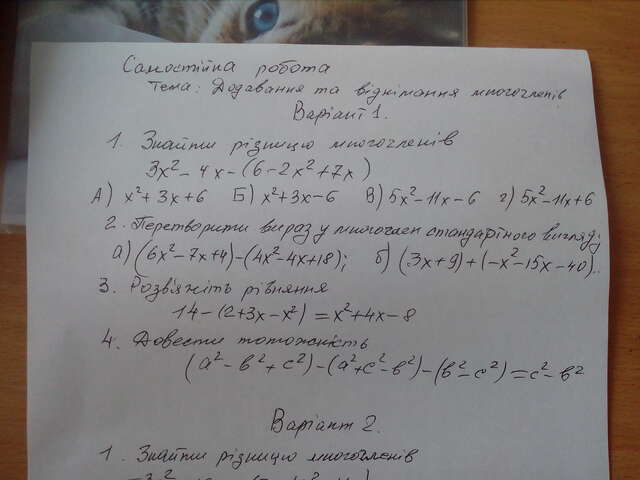 Самостійна робота
Тема: Додавання та віднімання многочленів
Варіант 1.
1. Знайти різницю многочленів
3x² - 4x - (6 - 2x² + 7x)
А) x² + 3x + 6 Б) x² + 3x - 6 В) 5x² - 11x - 6 г) 5x² - 11x + 6
2. Перетворити вираз у многочлен стандартного вигляду
а) (6x² - 7x + 4) - (4x² - 4x + 18); б) (3x + 9) + (-x² - 15x - 40).
3. Розв'яжіть рівняння
14 - (2 + 3x - x²) = x² + 4x - 8
4. Довести тотожність
(a² - b² + c²) - (a² + c² - b²) - (b² - c²) = c² - b²
Варіант 2.
1. Знайти різницю многочленів